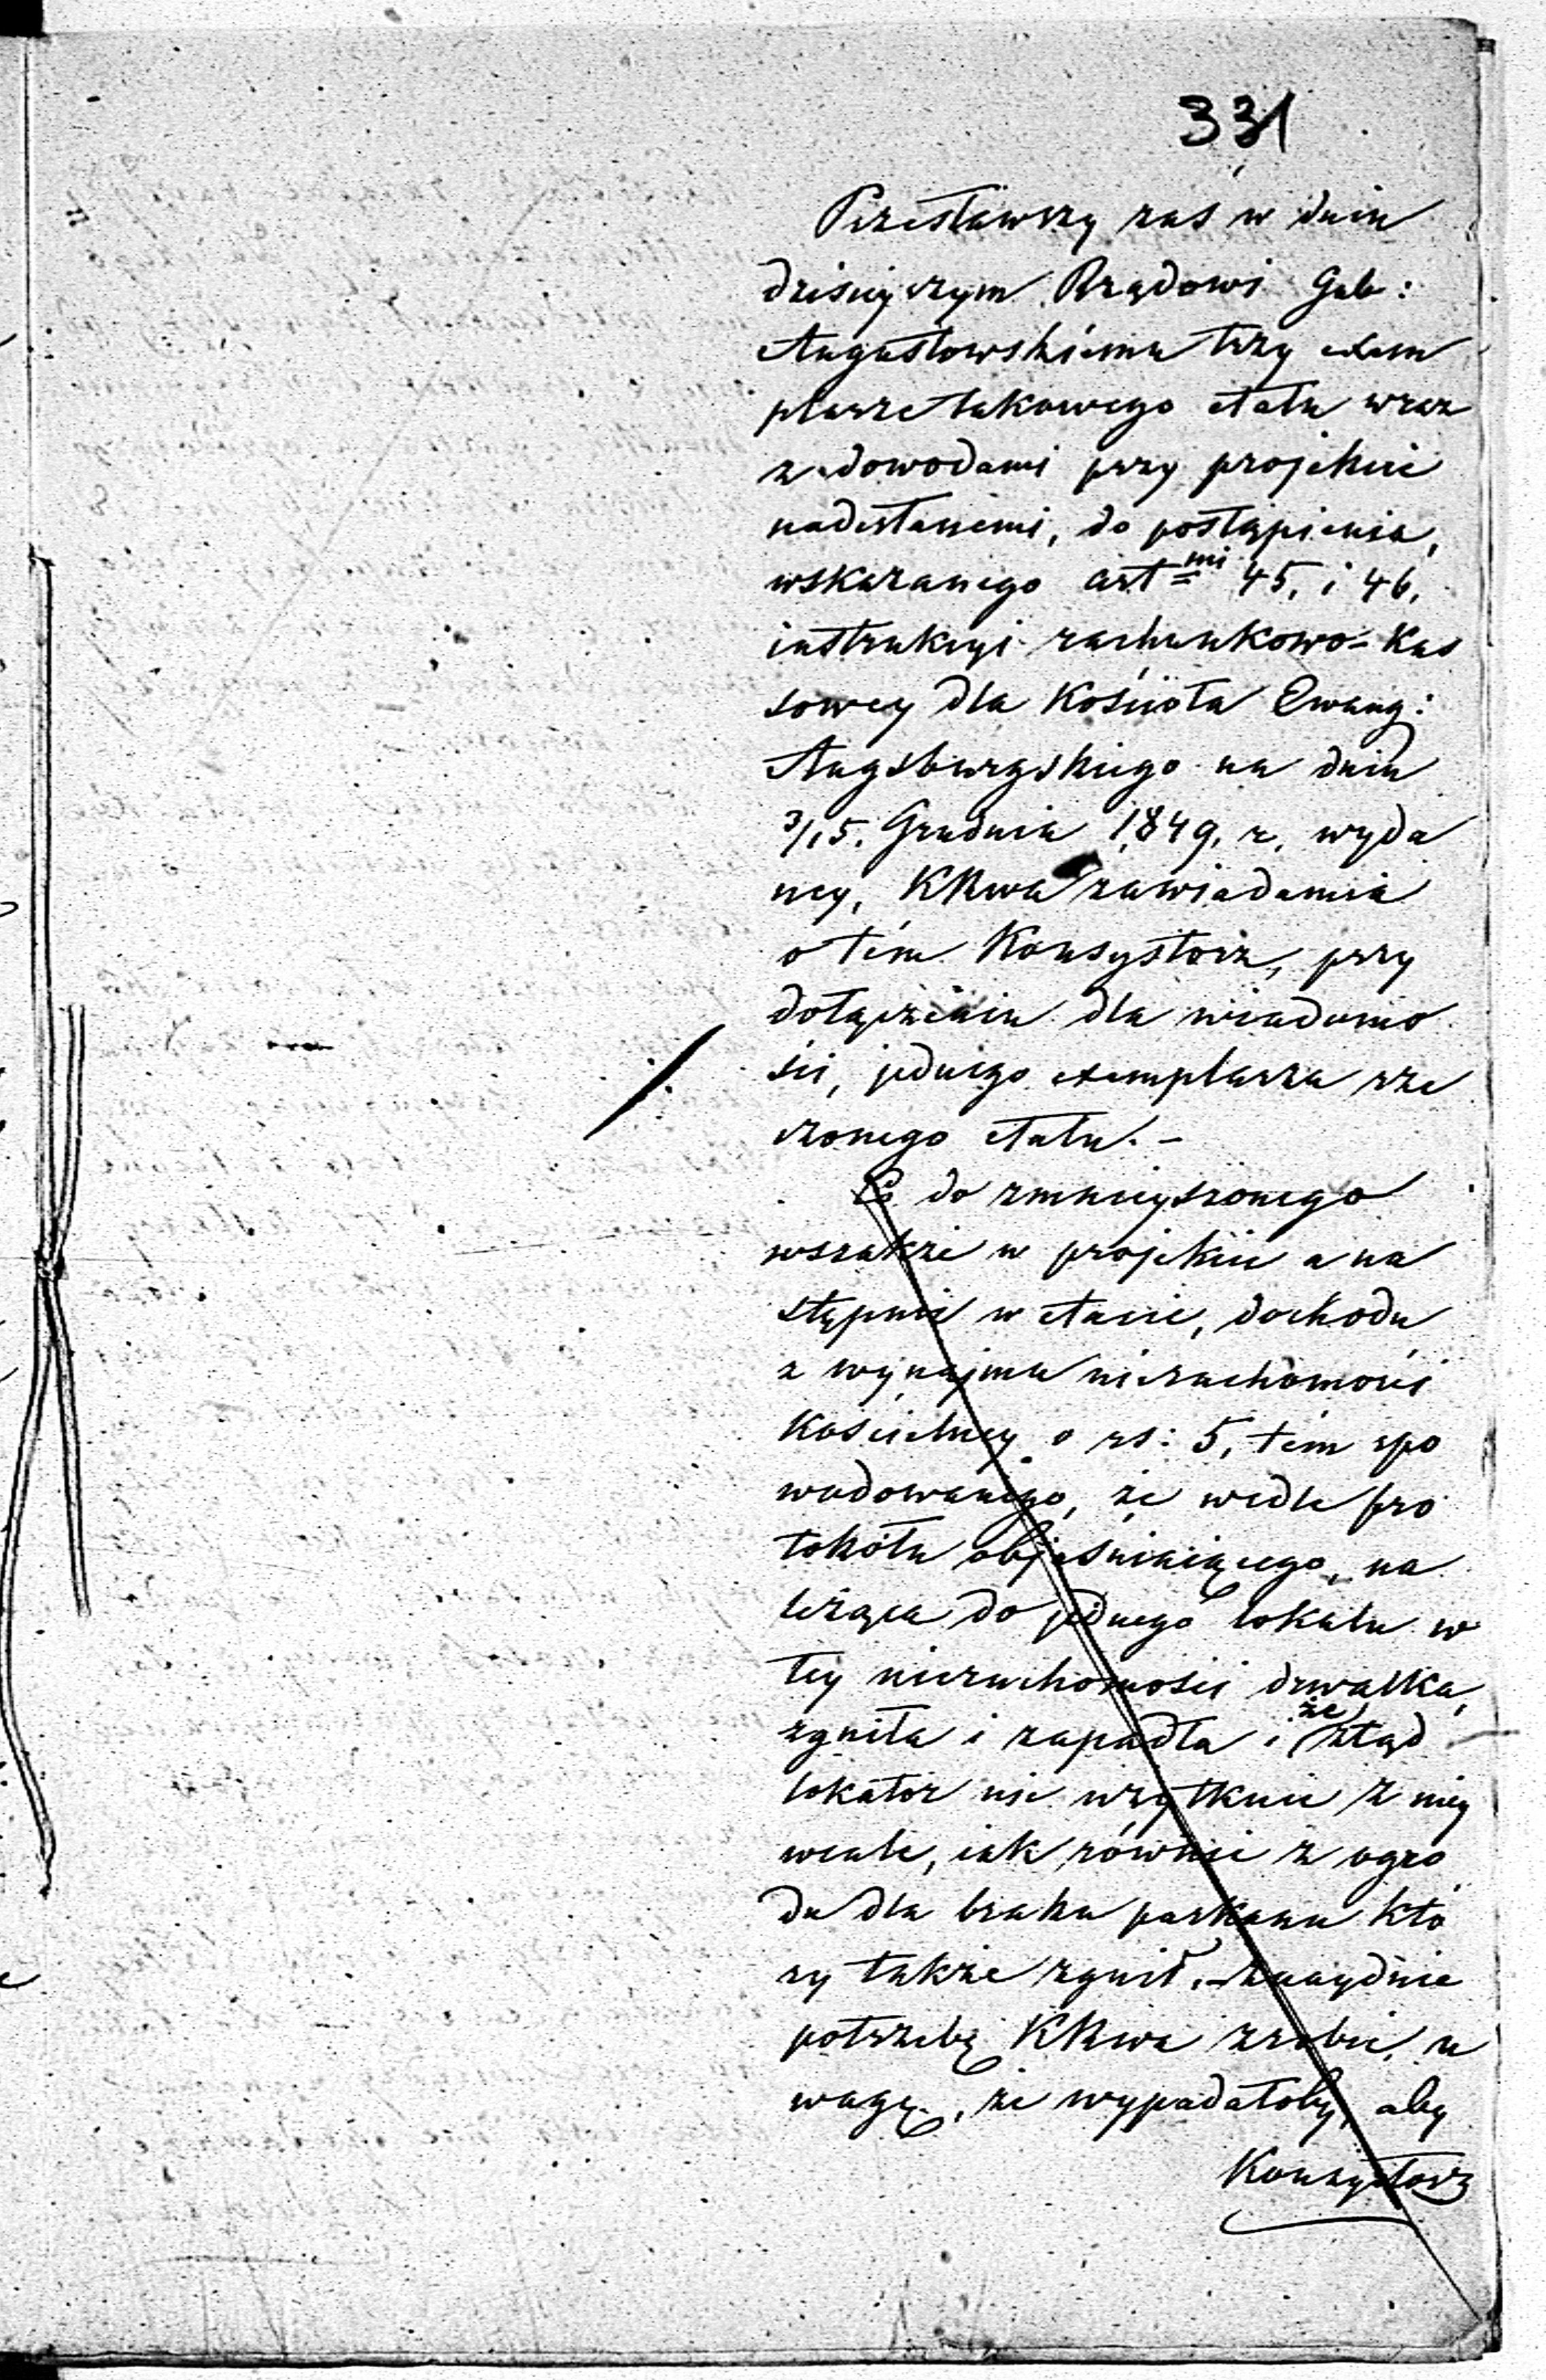 331
Przesławszy zaś w dniu
dzisieyszym Rządowi Gub:
Augustowskiemu trzy exem
plarze takowego etatu wraz
z dowodami przy projekcie
nadesłanemi, do postąpienia,
wskazanego art<sup>mi</sup> 45. i 46.
instrukcyi rachunkowo-Kas
sowey dla Kościoła Ewang:
Augsburgskiego na dniu
3/15. Grudnia 1849. r. wyda
ney, KRwa zawiadamia
o tém Konsystorz, przy
dołączeniu dla wiadomo
ści, jednego exemplarza rze
czonego etatu. -
Co do zmnieyszonego
wszakże w projekcie a na
stępnie w etacie, dochodu
z wynajmu nieruchomości
Kościelney o rs: 5, tém spo
wodowanego, że wedle pro
tokółu objaśniaiącego, na
leżąca do jednego lokalu w
tey nieruchomości drwalka,
zgniła i zapadła i że ztąd
lokator nie użytkuie z niey
wcale, iak równie z ogro
du dla braku parkanu któ
ry także zgnił, - znayduie
potrzebę KRwa zrobić u
wagę, że wypadałoby, aby
Konsystorz